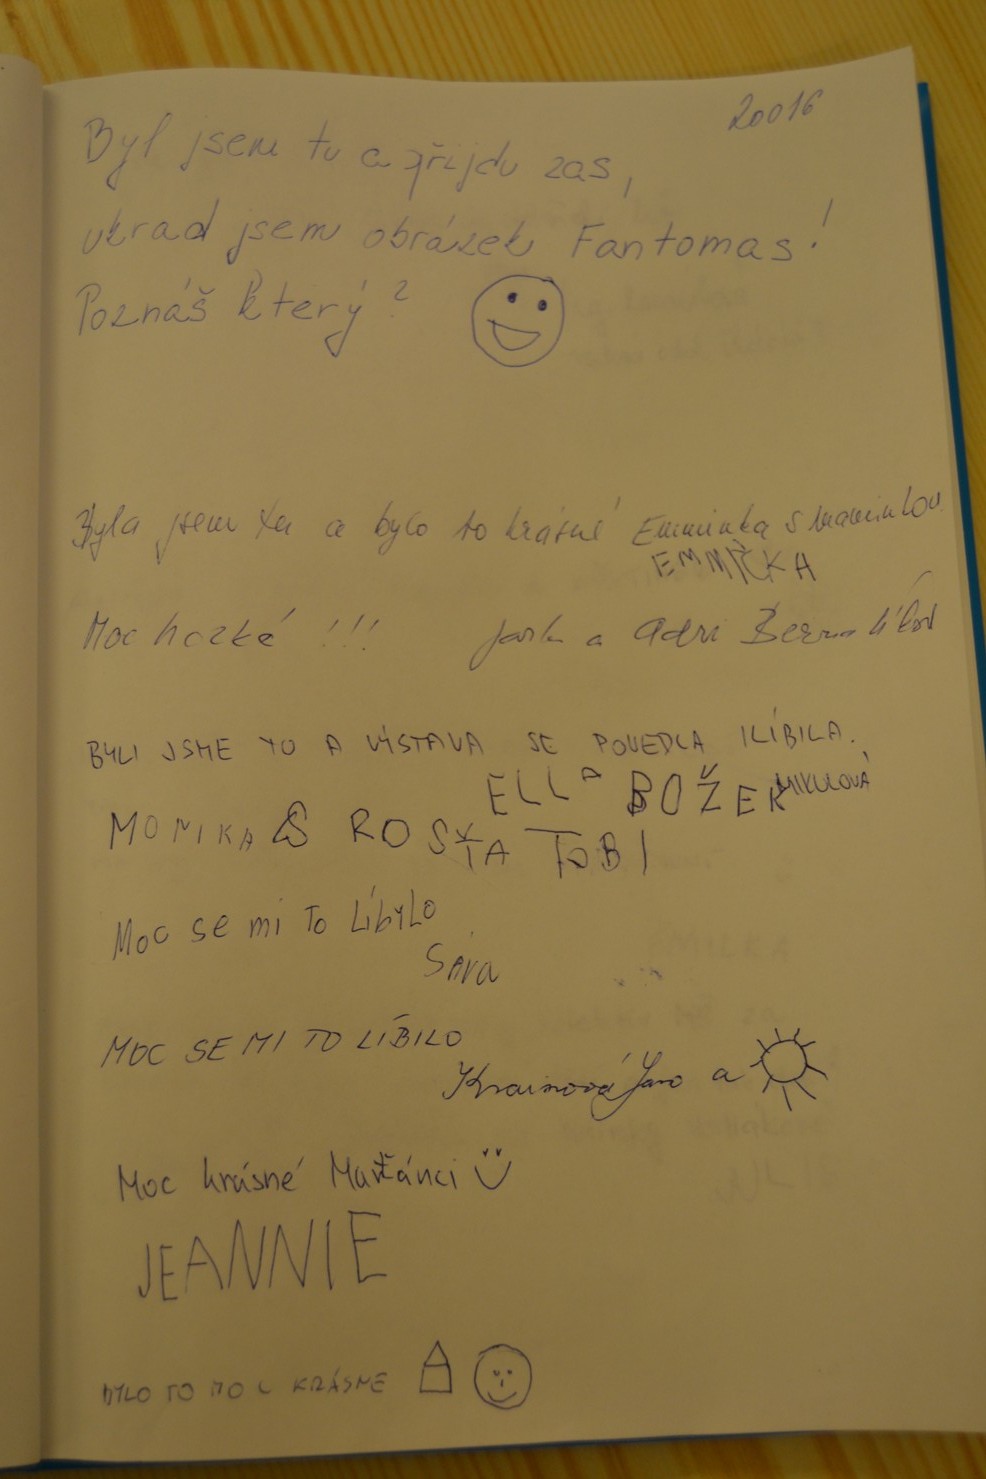 20016
Byl jsem tu a přijdu zas,
ukrad jsem obrázek Fantomas!
Poznáš který?
Byla jsem tu a bylo to krásné Emminka s maminkou
EMMIČKA
Moc hezké !!! a Adri
BYLI JSME TU A VÝSTAVA SE POVEDLA I LÍBILA.
ELLA BOŽEK MIKULOVÁ
MONIKA & ROSŤA TOBI
Moc se mi to líbylo
Sára
MOC SE MI TO LÍBILO
a
Moc krásné Marťánci
JEANNIE
BYLO TO MOC KRÁSNE